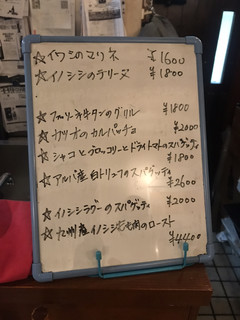 ☆イワシのマリネ ¥1600
☆イノシシのテリーヌ ¥1800
☆ファリーキ牛タンのグリル ¥1800
☆カツオのカルパッチョ ¥2000
☆シャコとブロッコリーとドライトマトのスパゲッティ ¥1800
☆アルバ産白トリュフのスパゲッティ ¥2600
☆イノシシラグーのスパゲッティ ¥2000
☆九州産イノシシ肉のロースト ¥4400